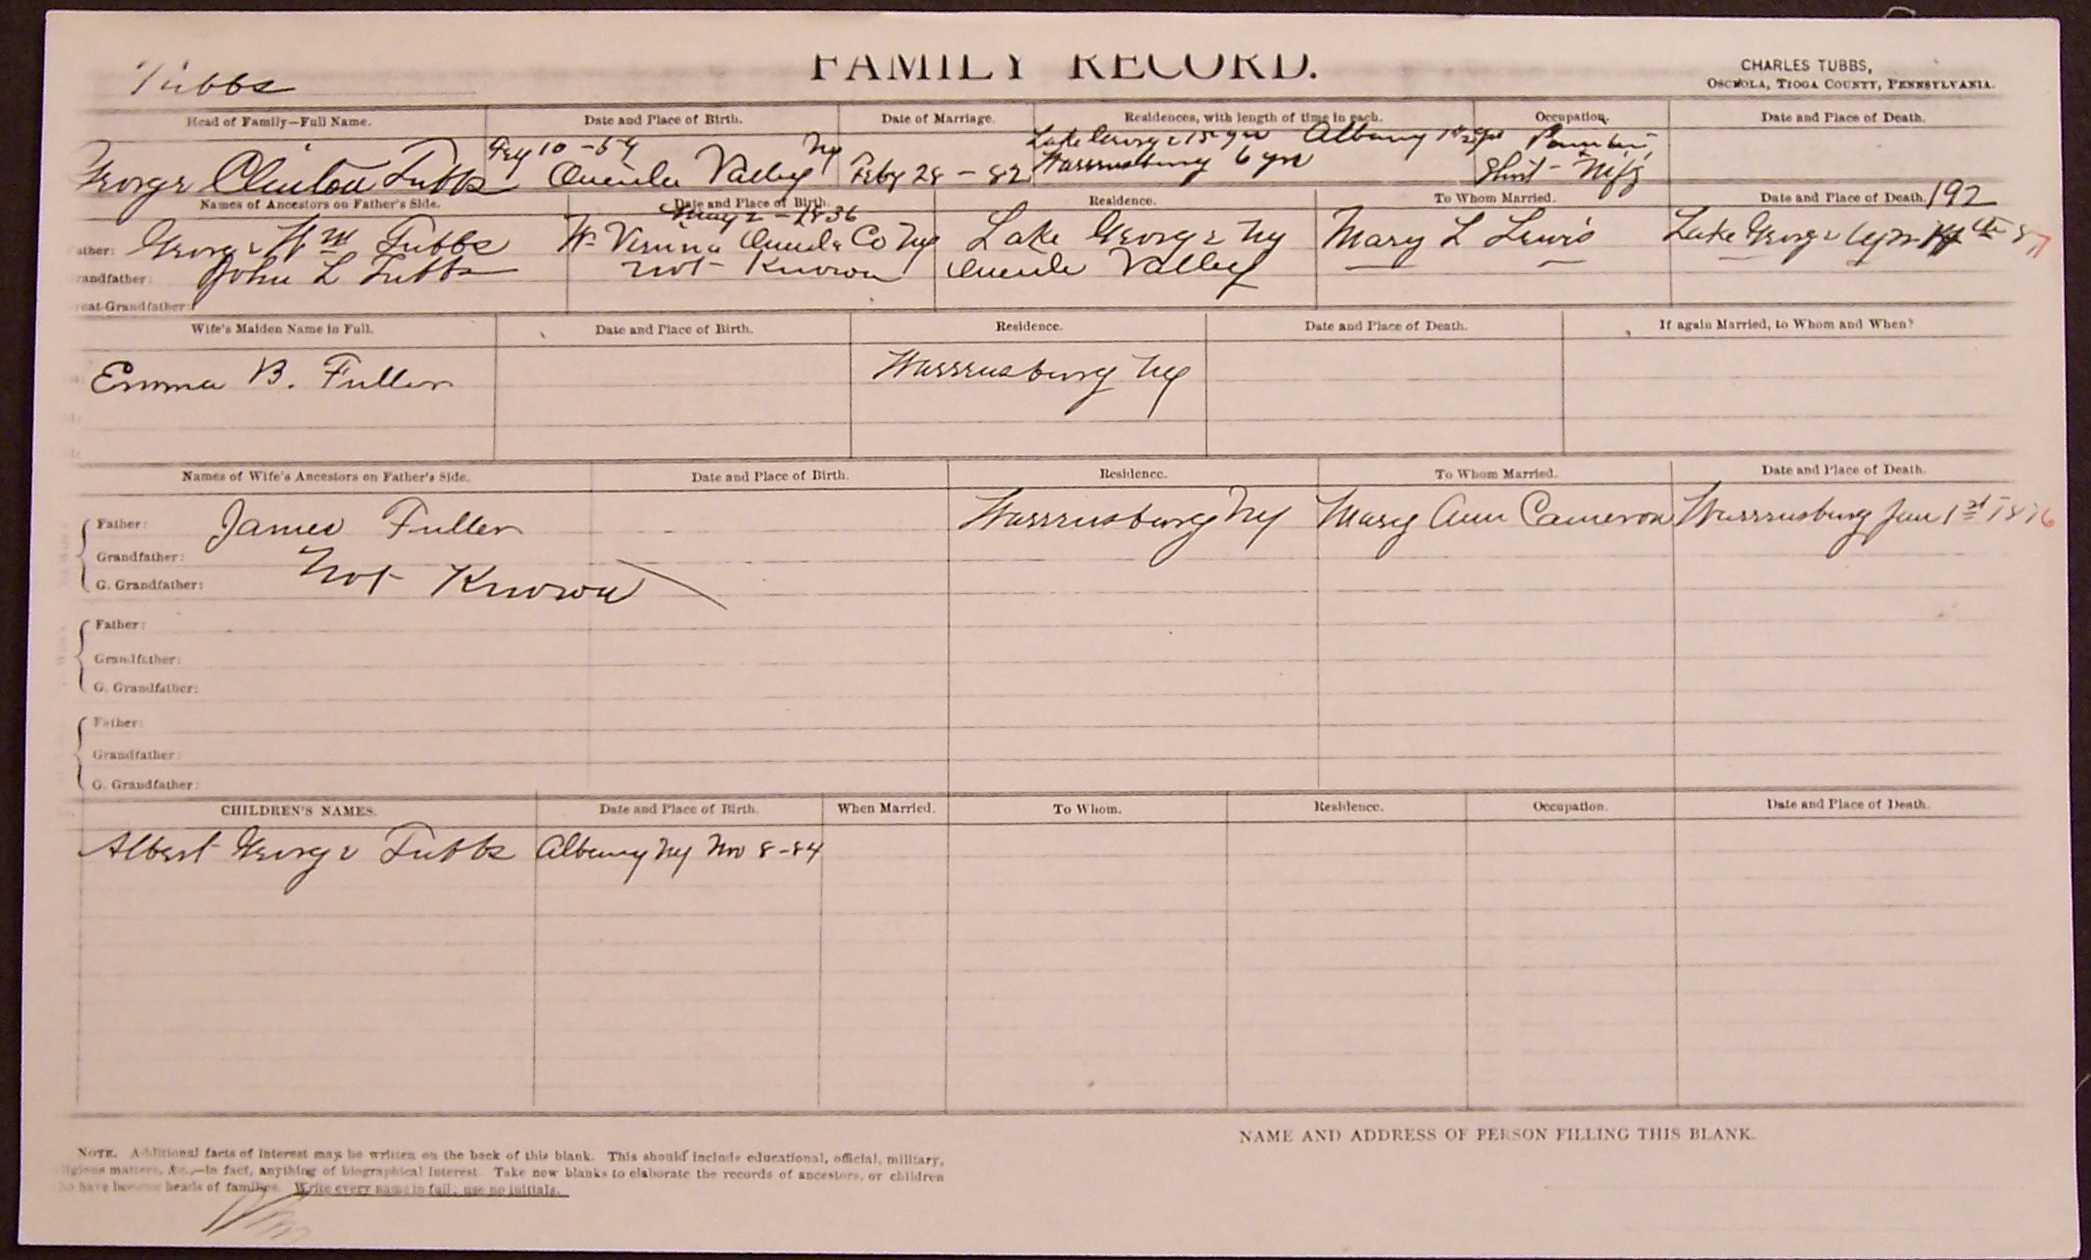 Tubbs
FAMILY RECORD.
CHARLES TUBBS,
OSCEOLA, TIOGA COUNTY, PENNSYLVANIA.
Head of Family—Full Name. Date and Place of Birth. Date of Marriage. Residences, with length of time in each. Occupation. Date and Place of Death.
10 - 54 Ny Lake George 15 yrs Albany
George Clinton Tubbs Oneida Valley Feby 28 - 82 Warrensburg 6 yrs Shirt - Mfg
Names of Ancestors on Father's Side. Date and Place of Birth. Residence. To Whom Married. Date and Place of Death. 192
May 2 - 1836
ather: George Wm Tubbs W. Verona Oneida Co Ny Lake George Ny Mary L Lewis Lake George
randfather: John L Tubbs not Known Oneida Valley
reat-Grandfather:
Wife's Maiden Name in Full. Date and Place of Birth. Residence. Date and Place of Death. If again Married, to Whom and When?
Emma B. Fuller Warrensburg Ny
Names of Wife's Ancestors on Father's Side. Date and Place of Birth. Residence. To Whom Married. Date and Place of Death.
Father: James Fuller Warrensburg Ny Mary Ann Cameron Warrensburg Jan 1st 1876
Grandfather: Not Known
G. Grandfather:
Father:
Grandfather:
G. Grandfather:
Father:
Grandfather:
G. Grandfather:
CHILDREN'S NAMES. Date and Place of Birth. When Married. To Whom. Residence. Occupation. Date and Place of Death.
Albert George Tubbs Albany Ny Nov 8-84
NAME AND ADDRESS OF PERSON FILLING THIS BLANK.
NOTE. Additional facts of interest may be written on the back of this blank. This should include educational, official, military,
ligious matters, &c.,—in fact, anything of biographical interest. Take new blanks to elaborate the records of ancestors, or children
ho have become heads of families. Write every name in full; use no initials.